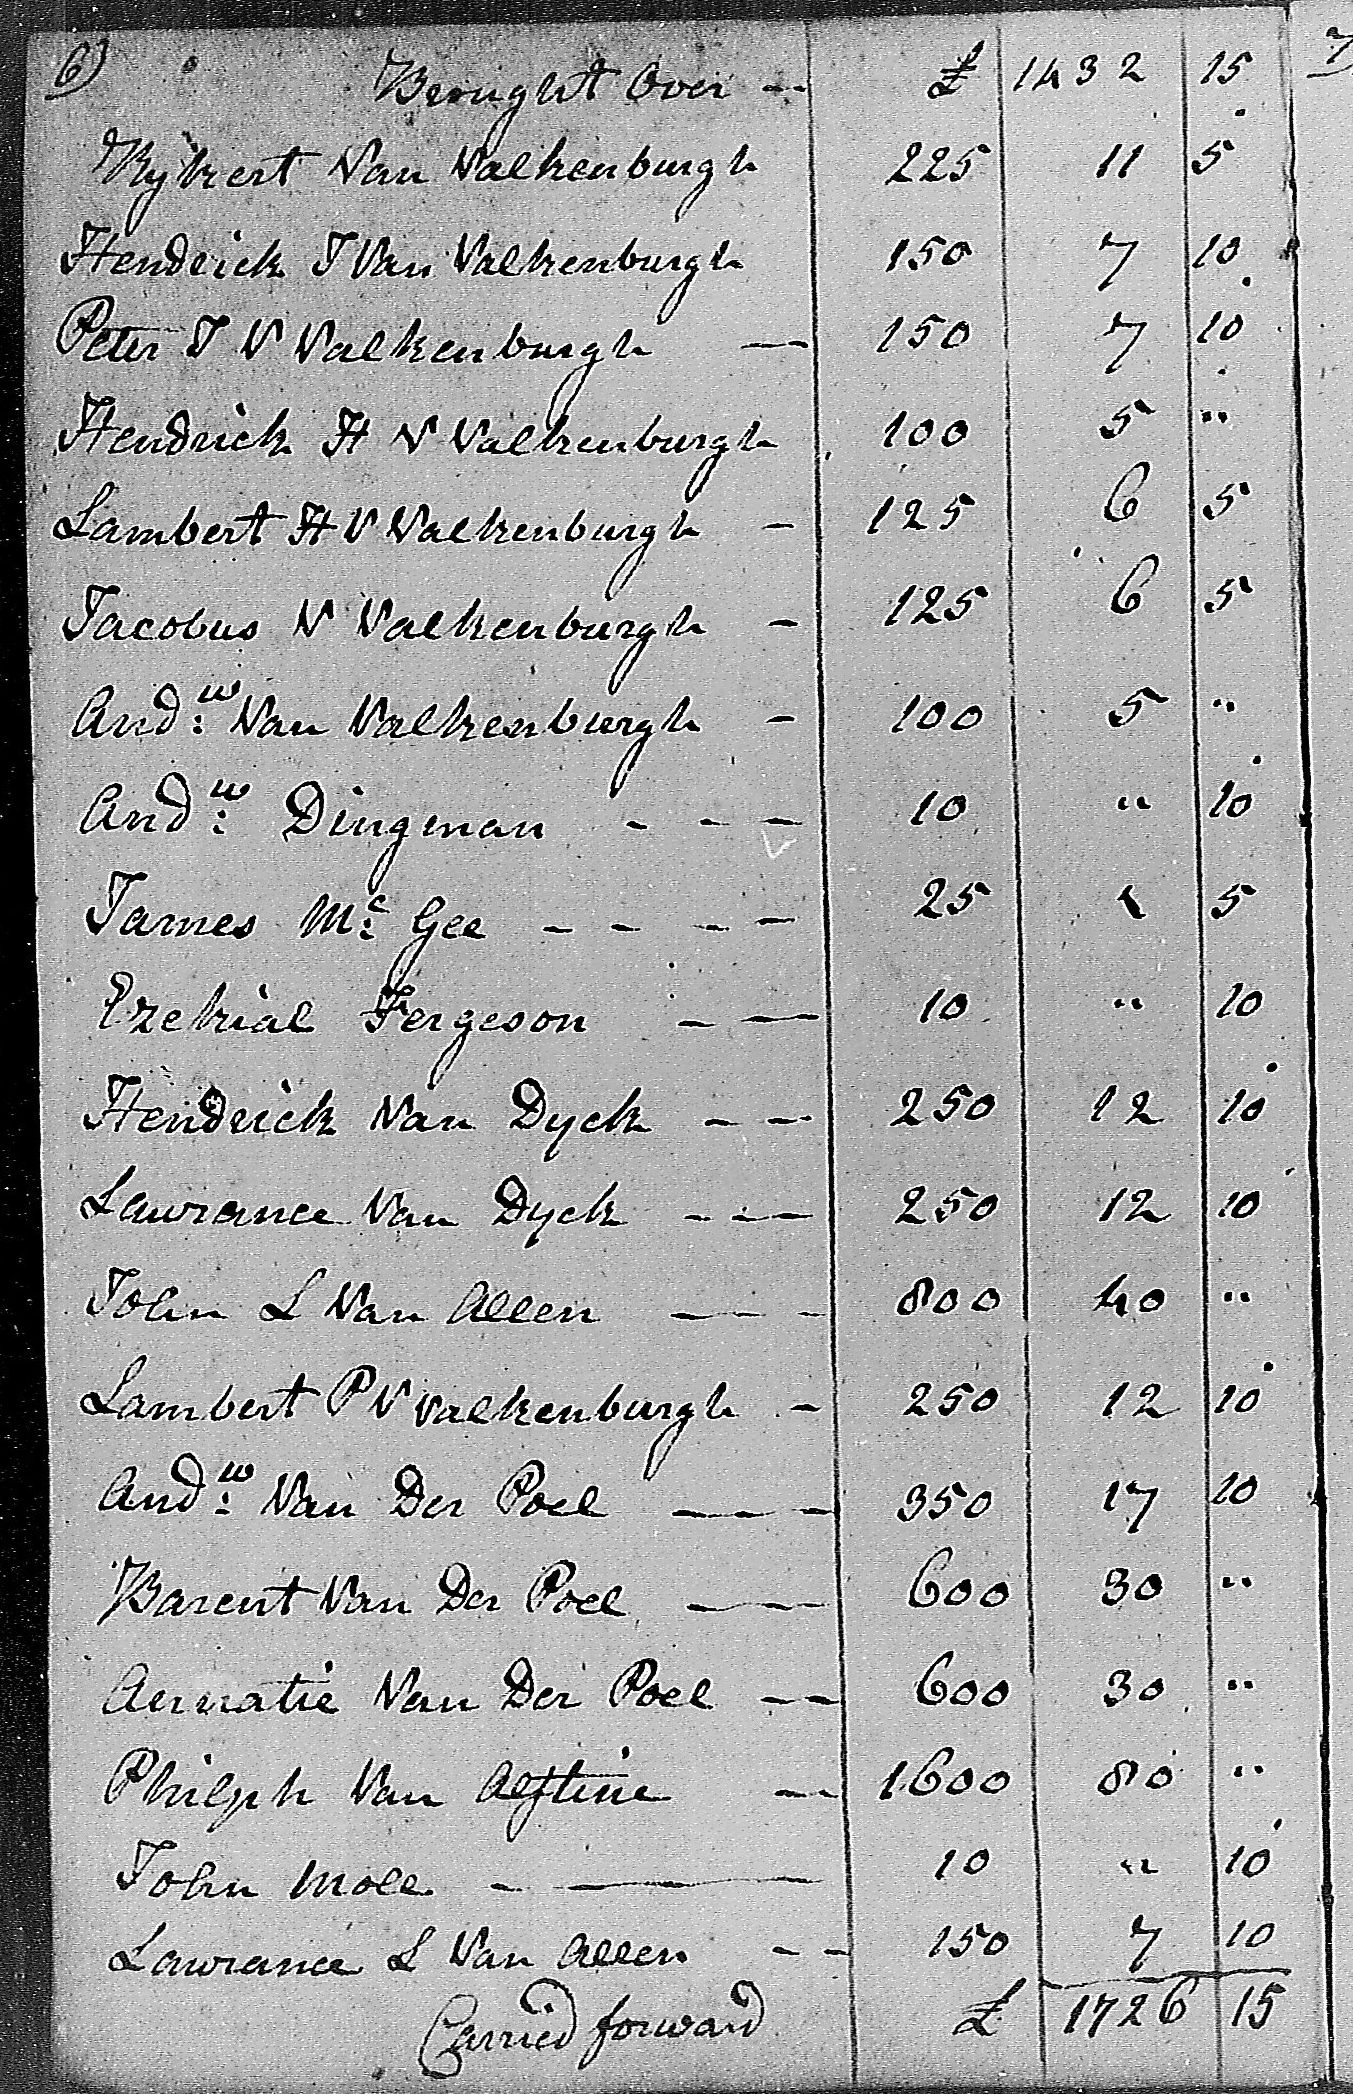 6) Brought Over -- £ 1432 15
Rykert Van Valkenburgh 225 11 5
Hendrick J Van Valkenburgh 150 7 10
Peter J V Valkenburgh — 150 7 10
Hendrick H V Valkenburgh 100 5 "
Lambert H V Valkenburgh - 125 6 5
Jacobus V Valkenburgh - 125 6 5
And:w Van Valkenburgh - 100 5 "
And:w Dingman - - - 10 " 10
James Mc: Gee - - - - 25 1 5
Ezekial Fergeson - — 10 " 10
Hendrick Van Dyck - - 250 12 10
Lawrance Van Dyck - - - 250 12 10
John L Van Allen - - - 800 40 "
Lambert P V Valkenburgh - 250 12 10
And:w Van Der Poel - - - 350 17 10
Barent Van Der Poel - - - 600 30 "
Annatie Van Der Poel - - 600 30 "
Philiph Van Alstine - - 1600 80 "
John Moll - — 10 " 10
Lawrance L Van Allen - - 150 7 10
Carried forward £ 1726 15
7)